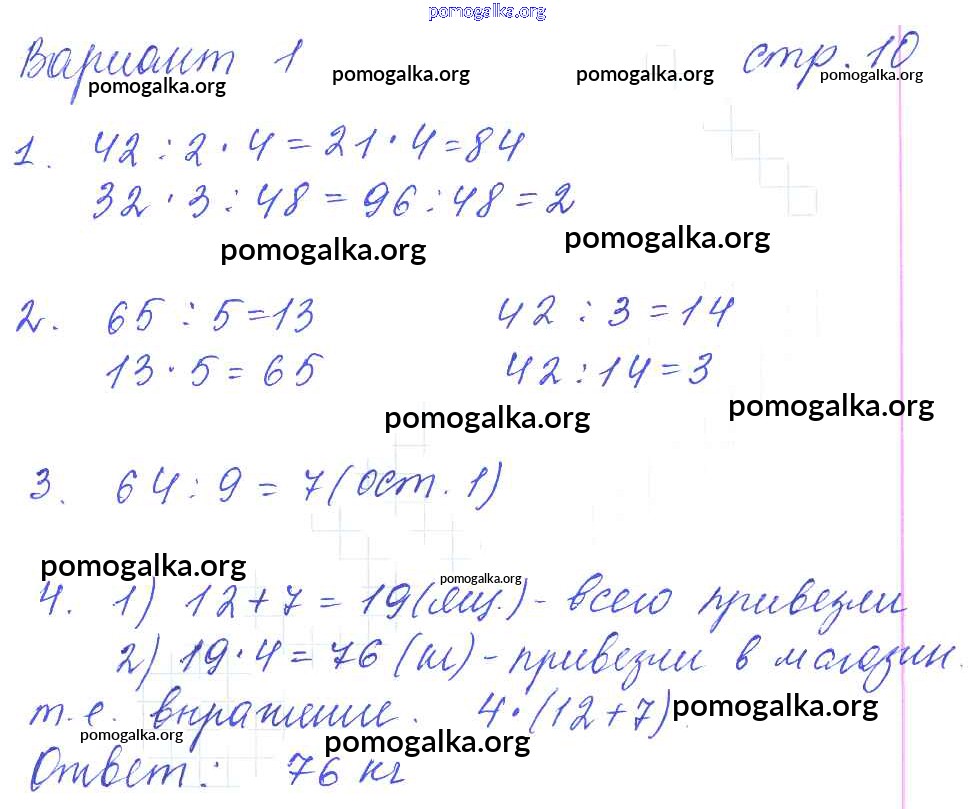 pomogalka.org
Вариант 1 стр. 10
pomogalka.org pomogalka.org pomogalka.org pomogalka.org
1. 42 : 2 · 4 = 21 · 4 = 84
32 · 3 : 48 = 96 : 48 = 2
pomogalka.org pomogalka.org
2. 65 : 5 = 13 42 : 3 = 14
13 · 5 = 65 42 : 14 = 3
pomogalka.org pomogalka.org
3. 64 : 9 = 7 (ост. 1)
pomogalka.org pomogalka.org
4. 1) 12 + 7 = 19 (ящ.) - всего привезли
2) 19 · 4 = 76 (кг) - привезли в магазин.
т.е. выражение. 4 · (12 + 7) pomogalka.org
pomogalka.org pomogalka.org
Ответ: 76 кг